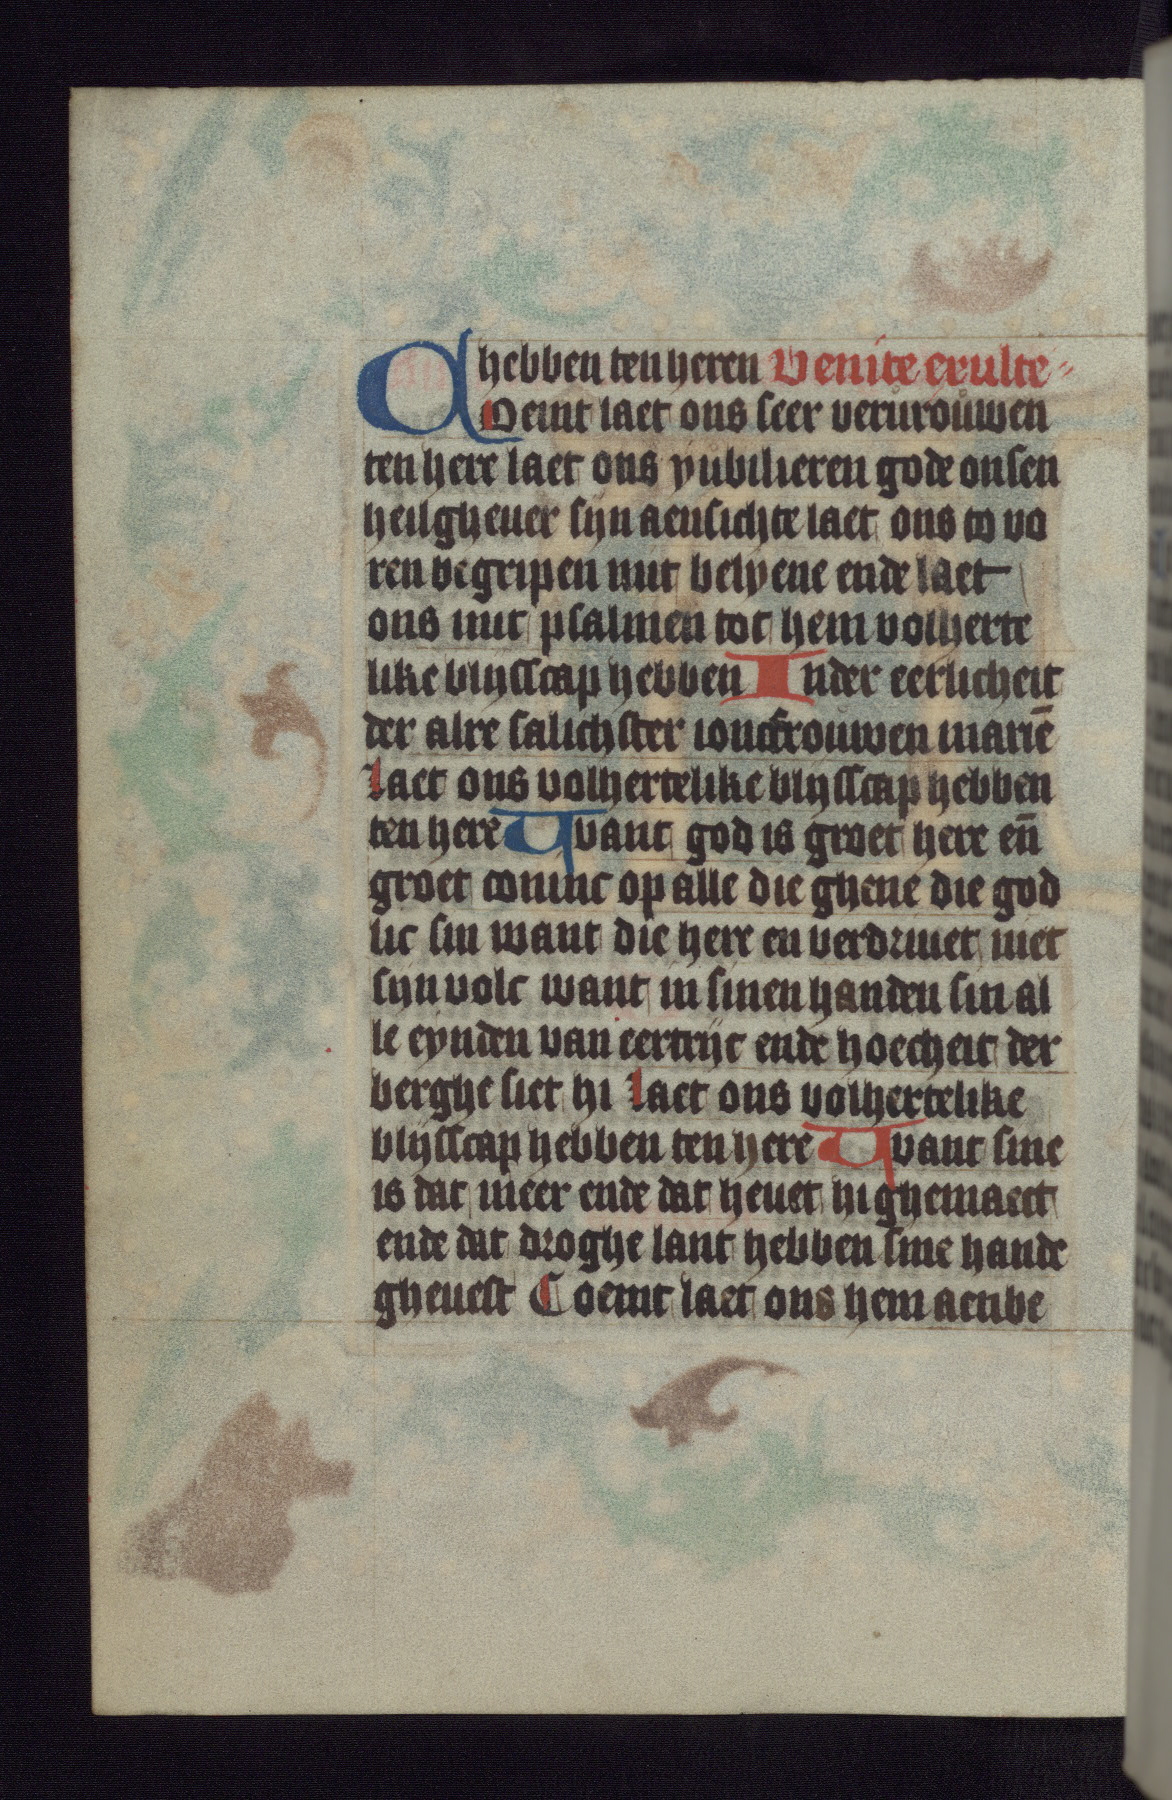 hebben ten heren Venite exulte
Coemt laet ons seer veruroůwen
ten here laet ons yubilieren gode onsen
heilgheuer sijn aensichte laet ons to vo
ren begripen mit belyene ende laet
ons mit psalmen tot hem volherte
like blijsscap hebben Inder eerlicheit
der alre salichster ioncfrouwen mariē
laet ons volhertelike blijsscap hebben
ten here Want god is groet here en̄
groet coninc op alle die ghene die god
lic sin want die here en verdriuet niet
sijn volc want in sinen handen sin al
le eynden van eertrijc ende hoecheit der
berghe siet hi laet ons volhertelike
blijsscap hebben ten here Want sine
is dat meer ende dat heuet hi ghemaect
ende dat droghe lant hebben sine hande
gheuest Coemt laet ons hem aenbe